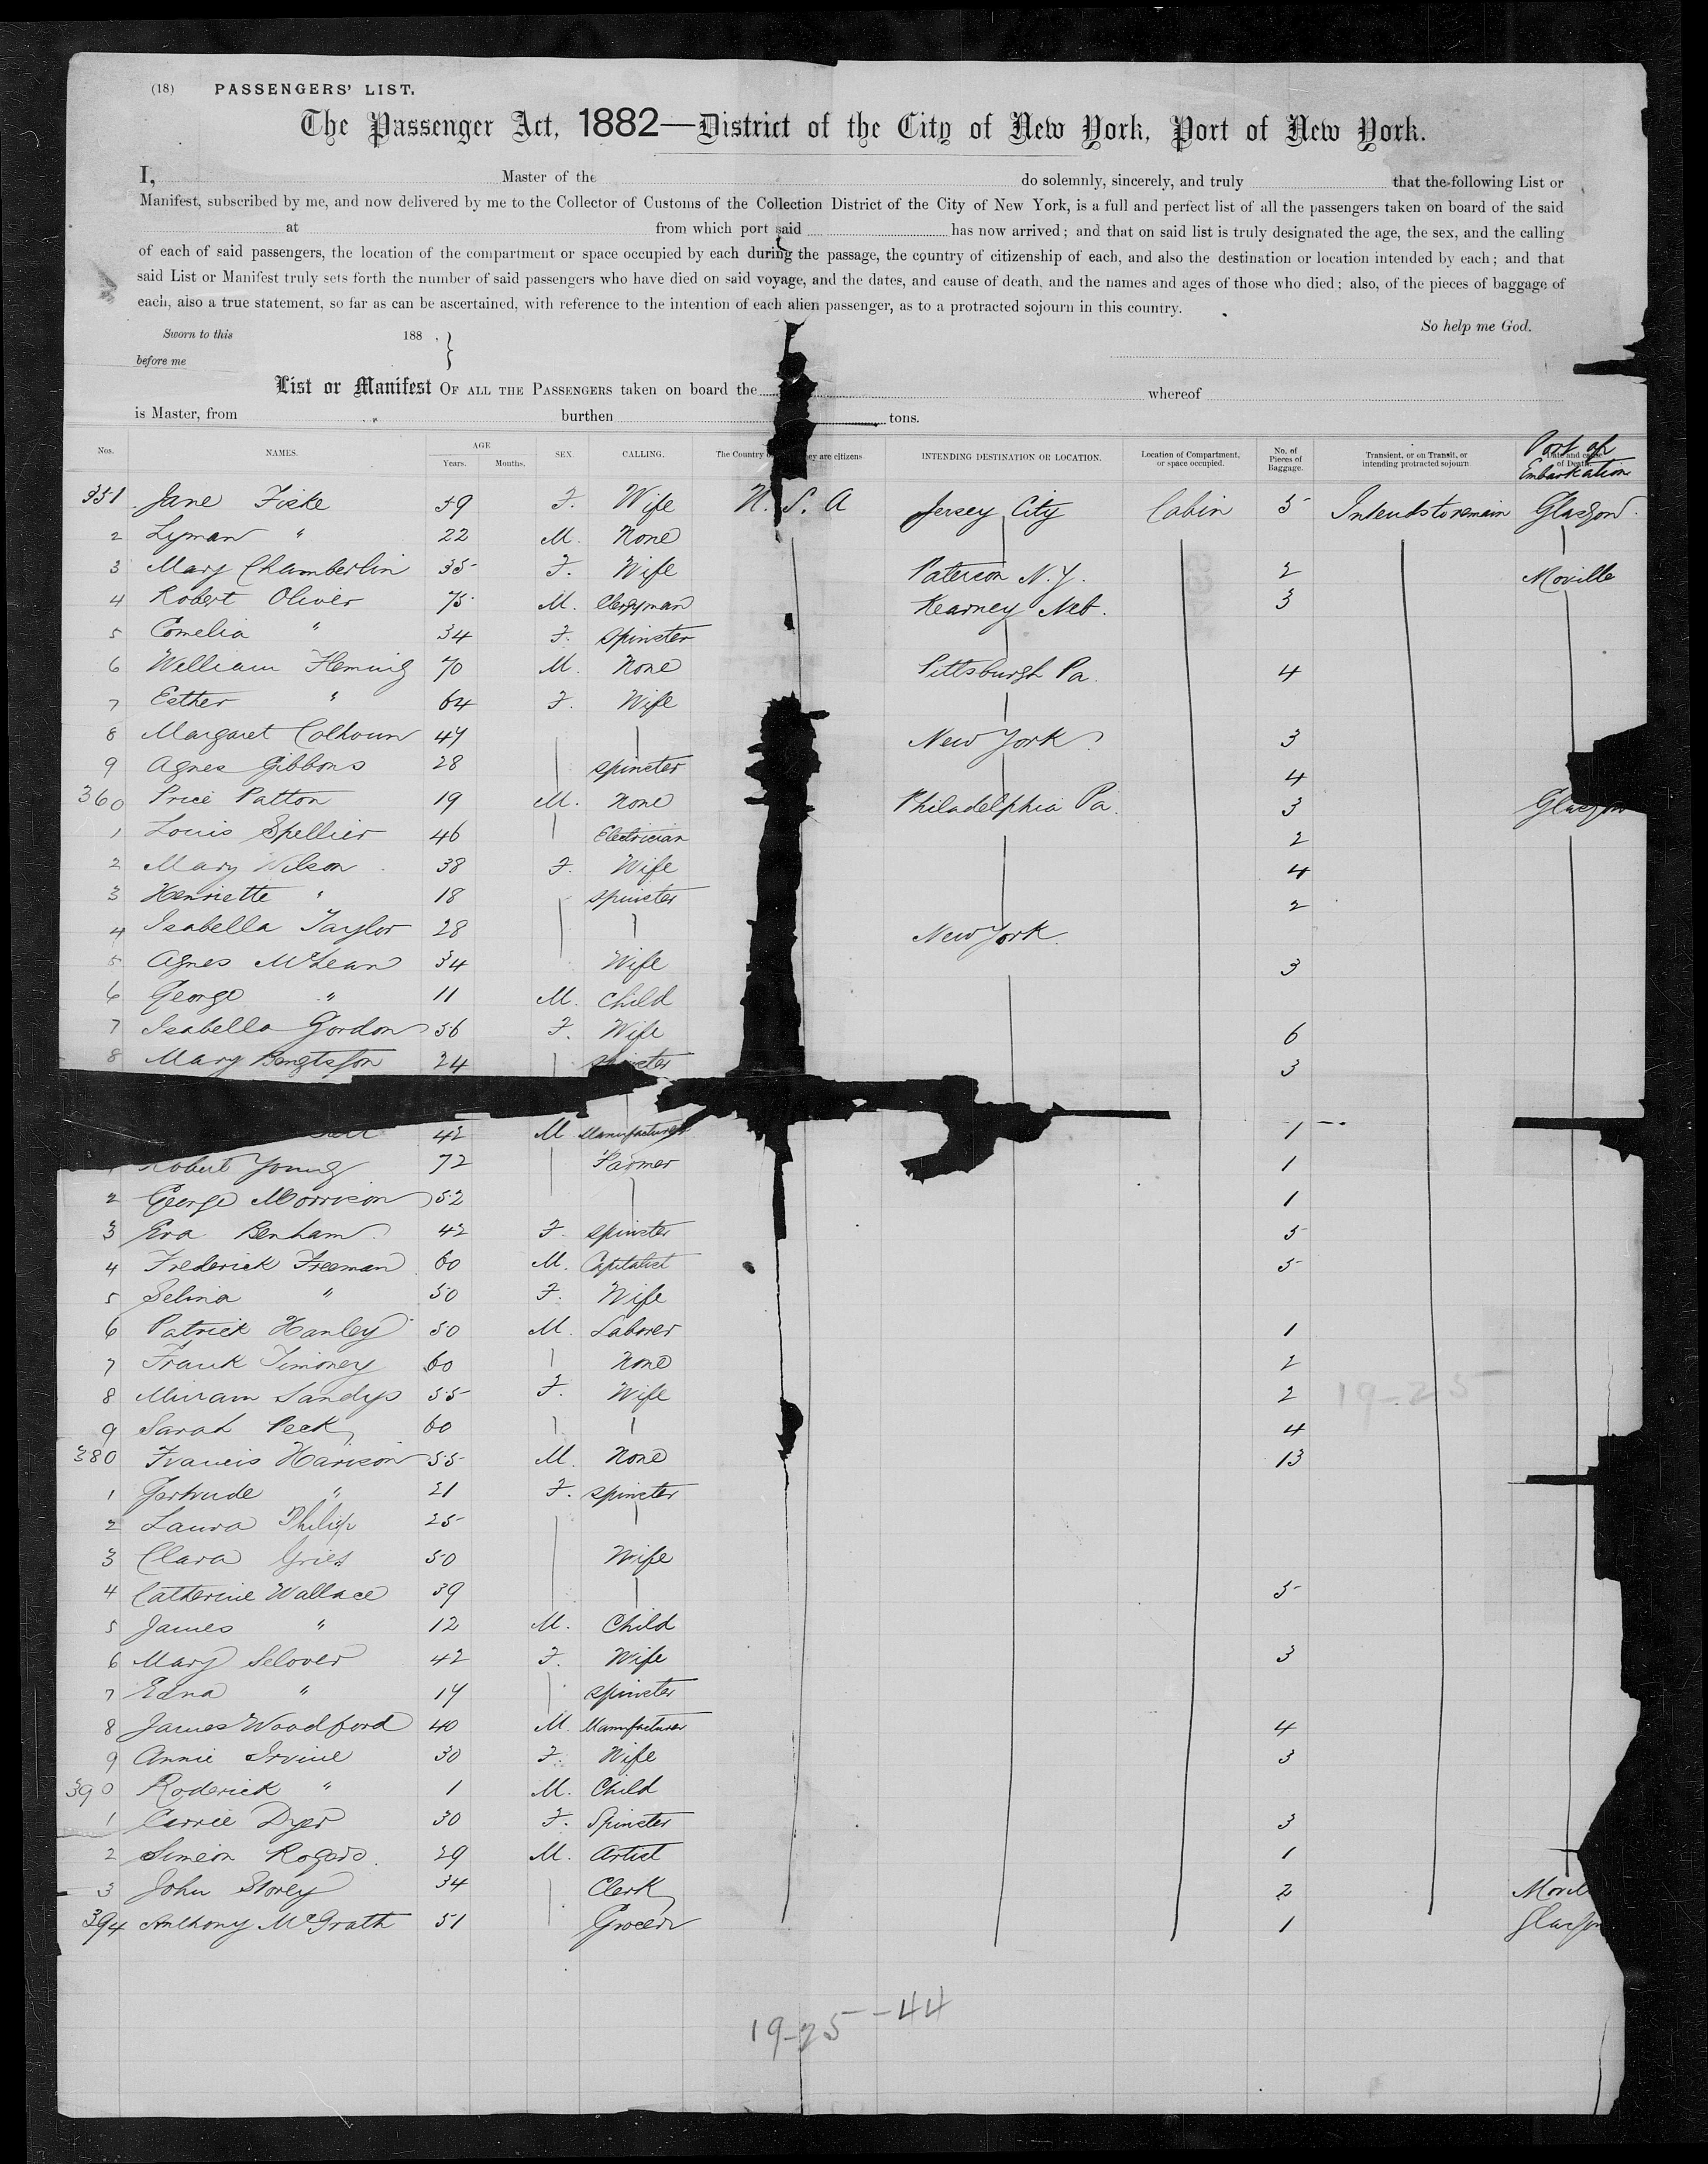 (18) PASSENGERS' LIST.
The Passenger Act, 1882—District of the City of New York, Port of New York.
I, Master of the do solemnly, sincerely, and truly that the following List or
Manifest, subscribed by me, and now delivered by me to the Collector of Customs of the Collection District of the City of New York, is a full and perfect list of all the passengers taken on board of the said
at from which port said has now arrived; and that on said list is truly designated the age, the sex, and the calling
of each of said passengers, the location of the compartment or space occupied by each during the passage, the country of citizenship of each, and also the destination or location intended by each; and that
said List or Manifest truly sets forth the number of said passengers who have died on said voyage, and the dates, and cause of death, and the names and ages of those who died; also, of the pieces of baggage of
each, also a true statement, so far as can be ascertained, with reference to the intention of each alien passenger, as to a protracted sojourn in this country.
So help me God.
Sworn to this 188 , }
before me
List or Manifest OF ALL THE PASSENGERS taken on board the whereof
is Master, from burthen tons.
Nos. NAMES. AGE Years. Months. SEX. CALLING. The Country they are citizens INTENDING DESTINATION OR LOCATION. Location of Compartment, or space occupied. No. of Pieces of Baggage. Transient, or on Transit, or intending protracted sojourn Port of Embarkation
351 Jane Fiske 59 F. Wife U. S. A Jersey City Cabin 5 Intends to remain Glasgow
2 Lyman " 22 M. None
3 Mary Chamberlin 35 F. Wife Paterson N.J. 2 Moville
4 Robert Oliver 75 M. Clergyman Kearney Neb. 3
5 Cornelia " 34 F. Spinster
6 William Fleming 70 M. None Pittsburgh Pa. 4
7 Esther " 64 F. Wife
8 Margaret Colhoun 47 New York 3
9 Agnes Gibbons 28 Spinster 4
360 Price Patton 19 M. None Philadelphia Pa. 3 Glasgow
1 Louis Spellier 46 Electrician 2
2 Mary Wilson 38 F. Wife 4
3 Henriette " 18 Spinster 2
4 Isabella Taylor 28 New York.
5 Agnes McLean 34 Wife 3
6 George " 11 M. Child
7 Isabella Gordon 56 F. Wife 6
8 Mary Bengtsson 24 Spinster 3
42 M Manufacturer 1
Robert Young 72 Farmer 1
2 George Morrison 52 1
3 Eva Benham 42 F. Spinster 5
4 Frederick Freeman 60 M. Capitalist 5
5 Selina " 50 F. Wife
6 Patrick Hanley 50 M. Laborer 1
7 Frank Timoney 60 None 2
8 Miriam Sandys 55 F. Wife 2 19-25
9 Sarah Peck 60 4
380 Francis Harison 55 M. None 13
1 Gertrude " 21 F. Spinster
2 Laura Philip 25
3 Clara Gries 50 Wife
4 Catherine Wallace 39 5
5 James " 12 M. Child
6 Mary Selover 42 F. Wife 3
7 Edna " 14 Spinster
8 James Woodford 40 M. Manufacturer 4
9 Annie Irvine 30 F. Wife 3
390 Roderick " 1 M. Child
1 Carrie Dyer 30 F. Spinster 3
2 Simeon Rogers. 29 M. Artist 1
3 John Storey 34 Clerk 2
394 Anthony McGrath 51 Grocer 1 Glasgow
19-25-44